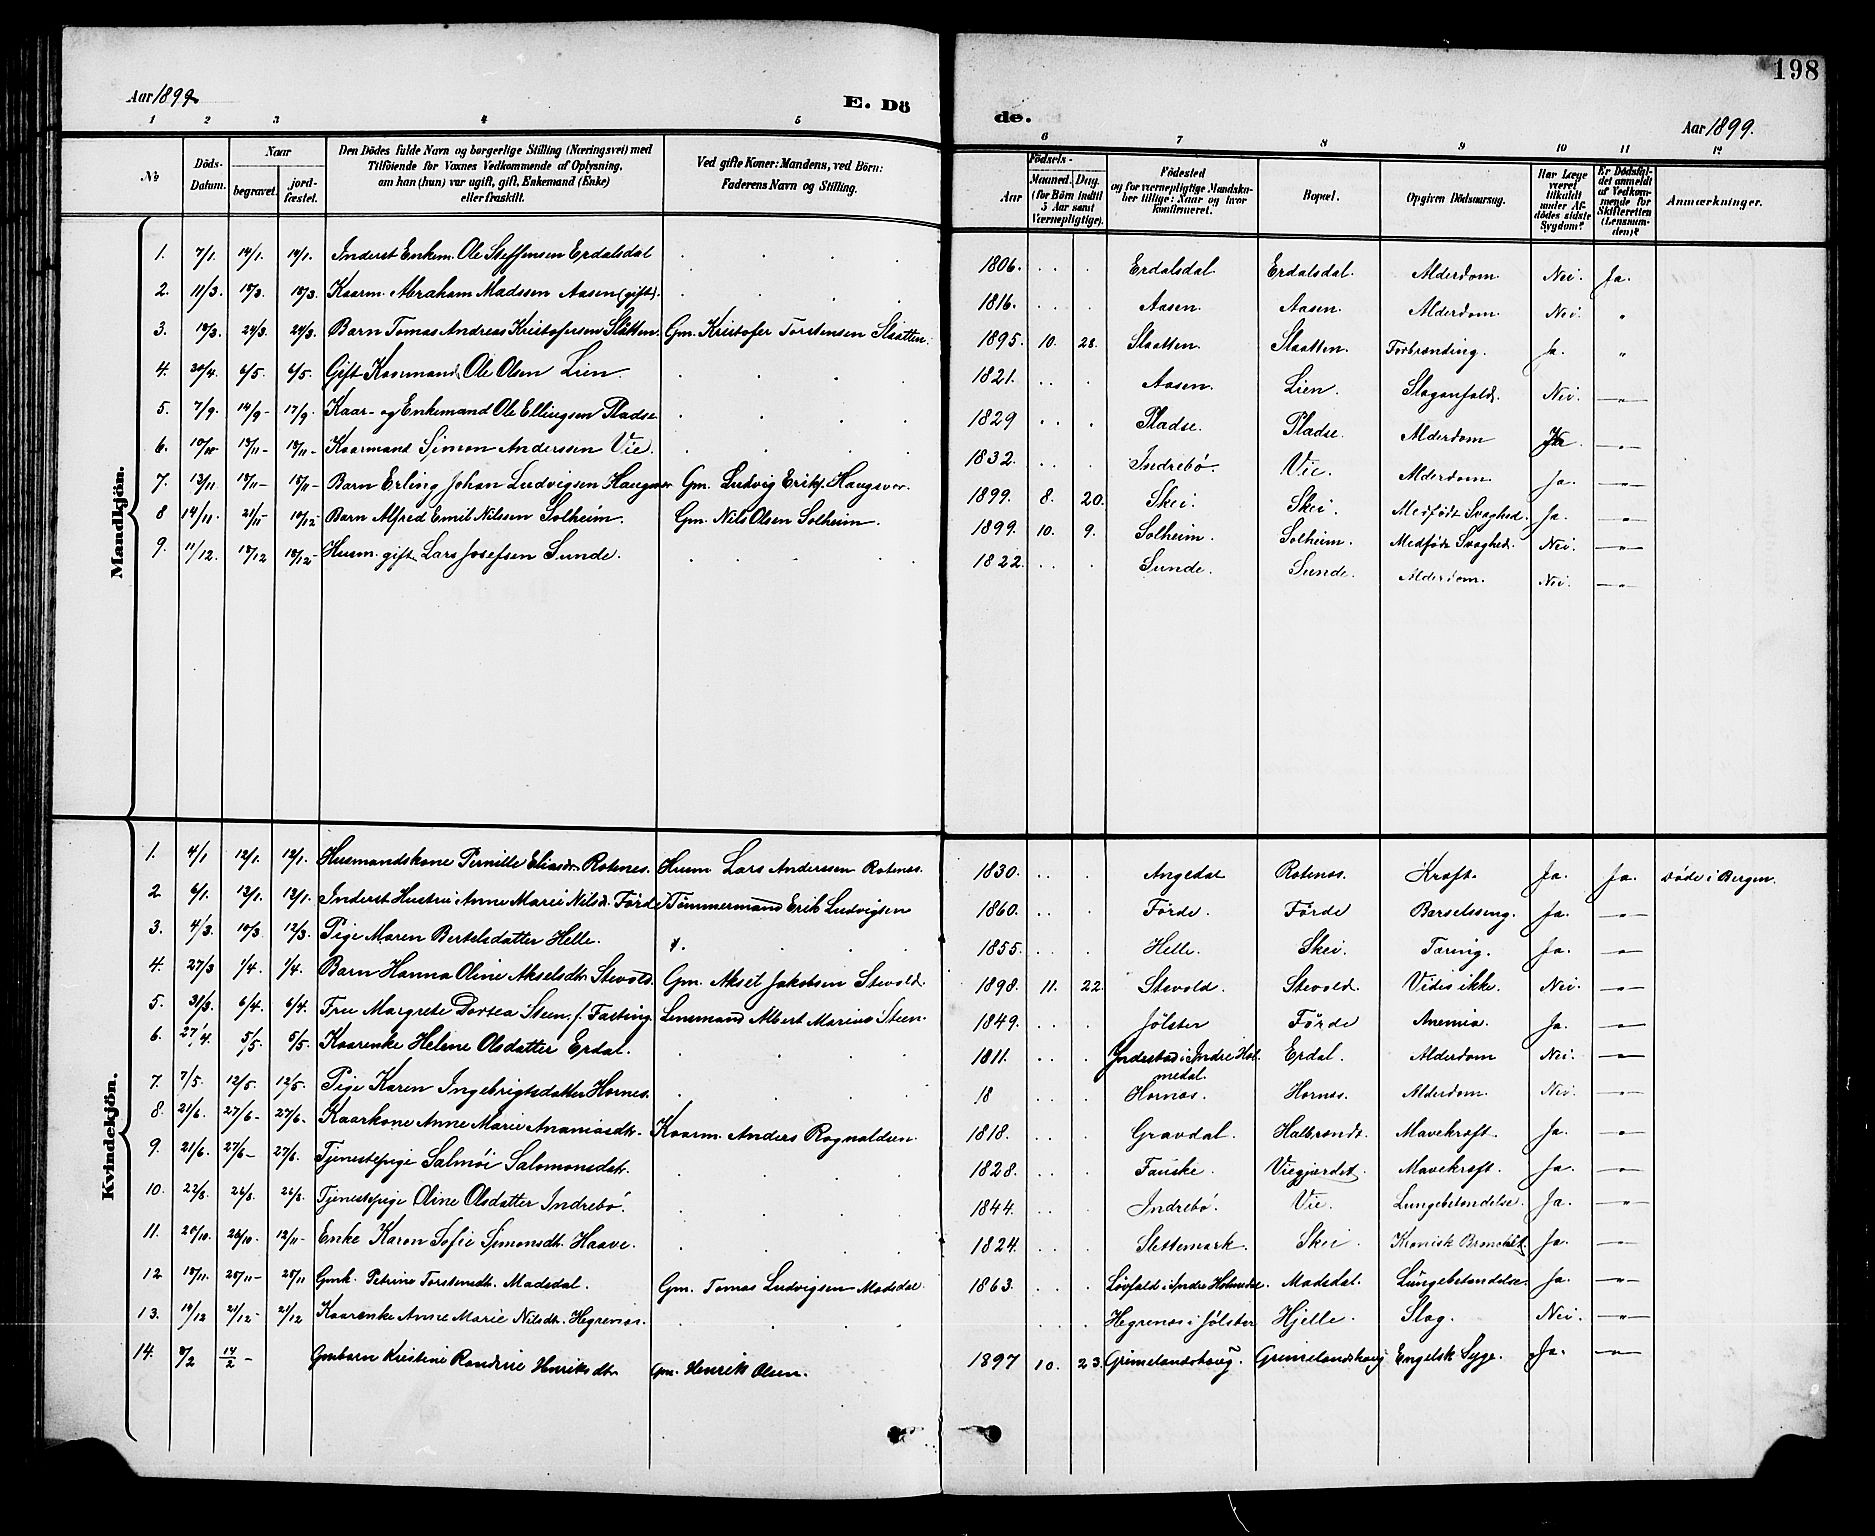 198
Aar 1899 E. Dö de. Aar 1899.
1 2 3 4 5 6 7 8 9 10 11 12
No Döds-Datum. Naar begravet. jord-fæstet. Den Dödes fulde Navn og borgerlige Stilling (Næringsvei) med Tilföiende for Voxnes Vedkommende af Oplysning, om han (hun) var ugift, gift, Enkemand (Enke) eller fraskilt. Ved gifte Koner: Mandens, ved Börn: Faderens Navn og Stilling. Födsels- Aar Maaned. Dag. (for Börn indtil 5 Aar samt Værnepligtige). Födested og for værnepligtige Mandska-ber tillige: Naar og hvor konfirmeret. Bopæl. Opgiven Dödsaarsag. Har Læge været tilkaldt under Af-dödes sidste Sygdom? Er Dödsfal-det anmeldt af Vedkom-mende for Skifteretten (Lensman-den)? Anmærkninger.
Mandkjön.
1. 7/1. 14/1. 14/1. Inderst Enkem. Ole Steffensen Erdalsdal 1806. Erdalsdal Erdalsdal. Alderdom Nei. Ja.
2. 11/3. 18/3. 18/3. Kaarm. Abraham Madssen Aasen (gift). 1816. Aasen. Aasen. Alderdom. Nei. "
3. 18/3. 24/3. 24/3. Barn Tomas Andreas Kristofersen Slåtten. Gm. Kristofer Torstensen Slaatten. 1895. 10. 28. Slaatten. Slaatten. Forbrænding. Ja. "
4. 20/4. 6/5. 6/5. Gift Kaarmand Ole Olsen Lien. 1821. Aasen. Lien. Slaganfald. Nei. —"—
5. 7/9. 14/9- 17/9. Kaar- og Enkemand Ole Ellingsen Pladse 1829 Pladse. Pladse. Alderdom —"—
6. 10/10 18/11- 18/11- Kaarmand Simon Anderssen Vie. 1832. Indrebö. Vie. Alderdom. Ja. —"—
7. 13/11 18/11- 18/11- Barn Erling Johan Ludvigsen Haugsvær Gm. Ludvig Eriks. Haugsvær. 1899. 8. 20. Skei. Skei. Medfödt Svaghed. Ja. —"—
8 14/11. 21/11 10/12- Barn Alfred Emil Nilssen Solheim. Gm. Nils Olsen Solheim. 1899. 10. 9. Solheim. Solheim. Medfödt Svaghed. Nei. —"—
9. 11/12. 18/12 18/12- Husm. gift Lars Josefsen Sunde. 1822. Sunde. Sunde. Alderdom. Nei. —"—
Kvindekjön.
1. 4/1 12/1. 12/1. Husmandskone Pernille Eliasdr. Rotenes. Husm Lars Anderssen Rotenes. 1830. Angedal Rotenes. Kræft. Ja. Ja. Döde i Bergen.
2. 6/1. 13/1. 13/1. Inderst Hustru Anne Marie Nilsd. Förde Tömmermand Erik Ludvigsen 1860. Förde. Förde Barselsseng. Ja. —"—
3. 4/3. 10/3. 12/3. Pige Maren Bertelsdatter Helle. 1855. Helle. Skei. Tæring. Ja. —"—
4. 27/3 1/4. 1/4. Barn Hanna Oline Akselsdtr. Stevold. Gm. Aksel Jakobsen Stevold. 1898. 11. 22. Stevold. Stevold. Vides ikke. Nei. —"—
5. 31/3. 6/4. 6/4. Fru Margrete Dortea Steen, f. Fasting. Lensmand Albert Marius Steen. 1849. Jølster Förde Anemia. Ja. —"—
6. 27/4. 5/5. 5/5. Kaarenke Helene Olsdatter Erdal. 1811. Yndestad i Indre Hol-medal. Erdal. Alderdom Nei. —"—
7. 7/5. 12/5. 12/5. Pige Karen Ingebrigtsdatter Hornes. 18 Hornes. Hornes. Alderdom. Nei. —"—
8. 21/6. 27/6- 27/6. Kaarkone Anne Marie Ananiasdtr. Kaarm. Anders Rognaldsen. 1818. Gravdal. Halbrends. Mavekræft. Ja. —"—
9. 21/6. 27/6- 27/6. Tjenestepige Salmöi Salomonsdtr. 1828. Fauske. Viegjerdet. Mavekræft. Ja. —"—
10. 22/8. 26/8. 26/8. Tjenestepige Oline Olsdatter Indrebö. 1844. Indrebö. Vie. Lungebetændelse. Ja. —"—
11. 20/10. 28/10. 12/11- Enke Karen Sofie Simonsdt. Haave. 1824. Slettemark. Skei. Kronisk Bronchit. Ja. —"—
12. 18/11. 25/11- 25/11 Gmk. Petrine Torstensdt. Madsdal. Gm. Tomas Ludvigsen Madsdal. 1863. Løvfald i Indre Holmedal. Madsdal. Lungebetændelse. Ja. —"—
13. 14/12 21/12- 21/12 Kaarenke Anne Marie Nilsdtr. Hegrenes. Hegrenes i Jølster Hjelle. Slag. Nei. —"—
14. 8/2 14/2 - Gmbarn Kristine Randine Henriksdtr Gm. Henrik Olsen. 1897 10. 23. Grimelandshaug. Grimelandshaug Engelsk Syge. Ja. —"—